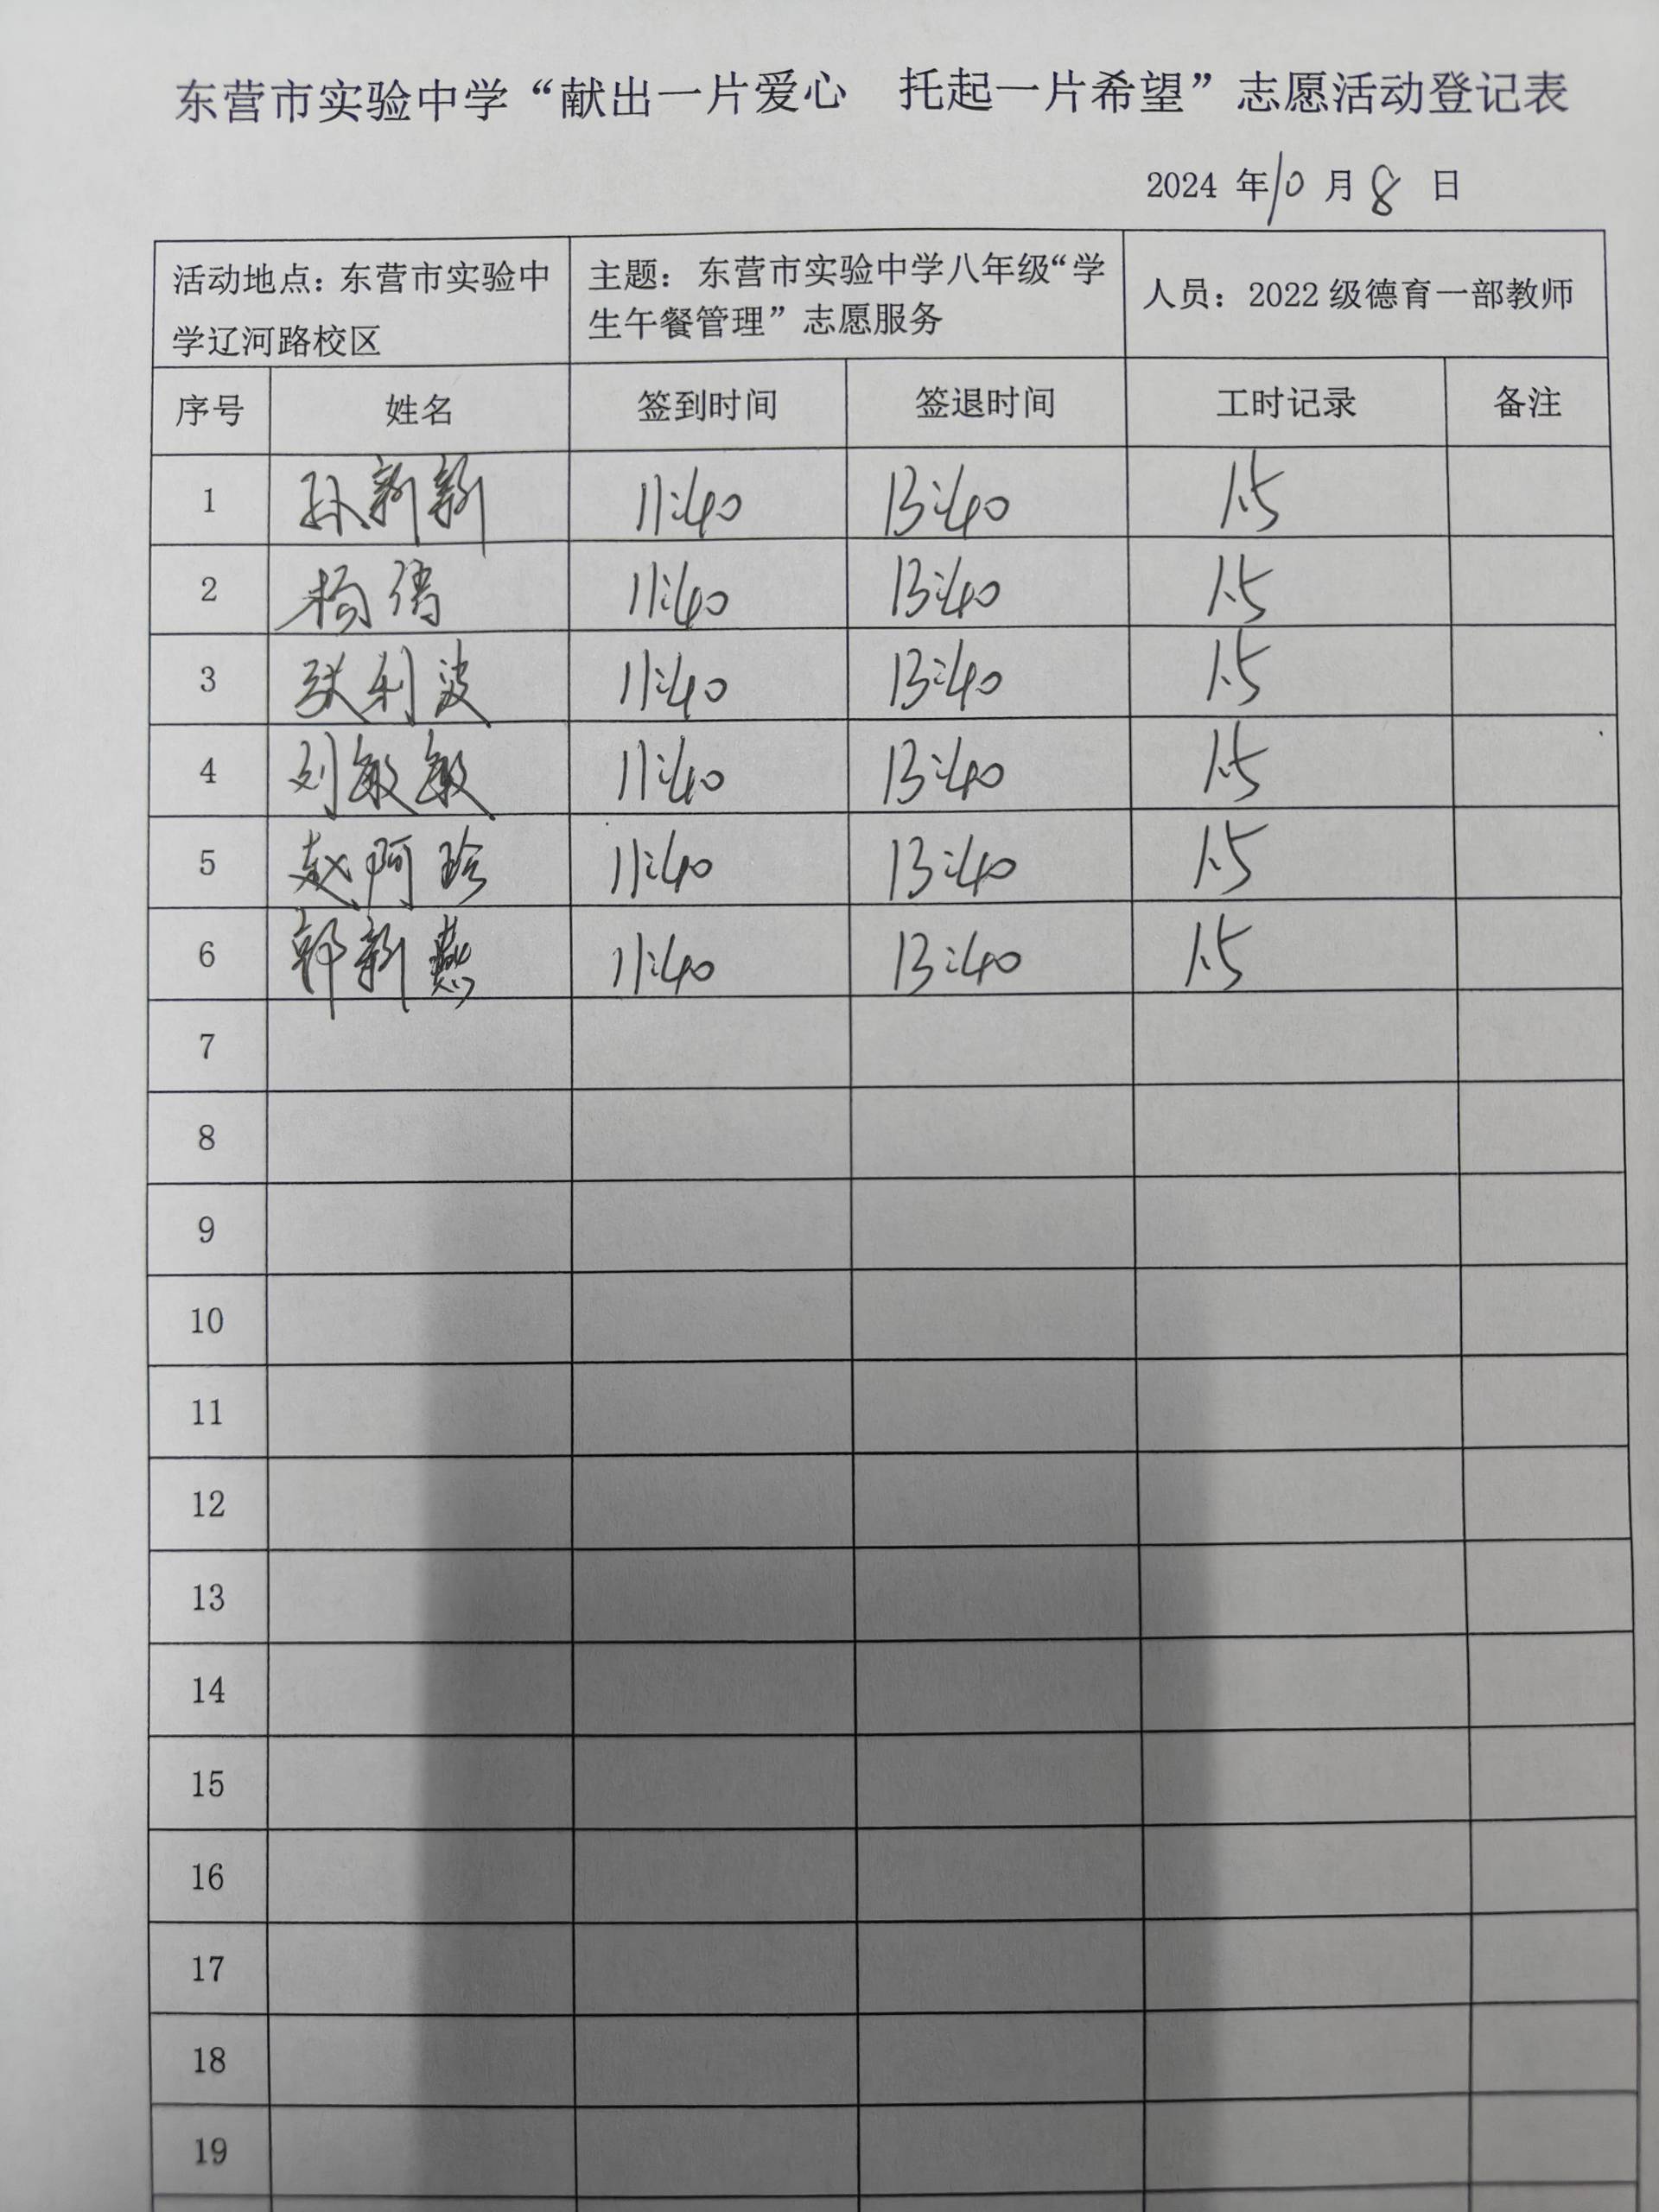 东营市实验中学“献出一片爱心 托起一片希望”志愿活动登记表
2024 年 10 月 8 日
活动地点：东营市实验中学辽河路校区 主题：东营市实验中学八年级“学生午餐管理”志愿服务 人员：2022级德育一部教师
序号 姓名 签到时间 签退时间 工时记录 备注
1 孙新新 11:40 13:40 1.5
2 杨倩 11:40 13:40 1.5
3 张利波 11:40 13:40 1.5
4 刘敏敏 11:40 13:40 1.5
5 赵阿珍 11:40 13:40 1.5
6 郭新燕 11:40 13:40 1.5
7
8
9
10
11
12
13
14
15
16
17
18
19